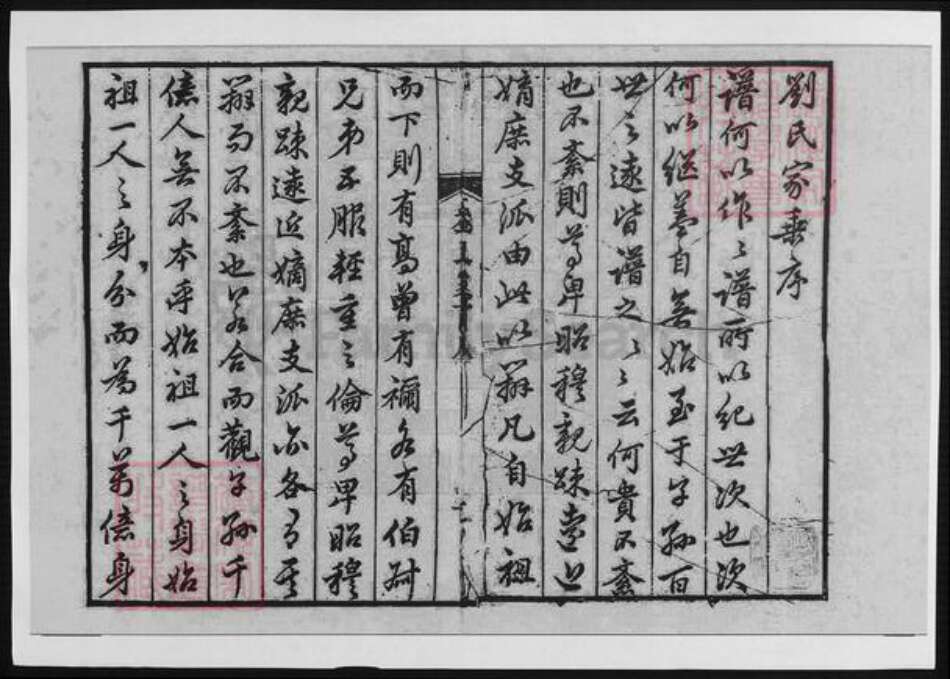 劉氏家乘序
譜何以作〻譜所以紀世次也次
何以継蓋自無始至于子孫百
世之遠皆譜之〻云何貴不紊
也不紊則尊卑昭穆親踈遠近
嫡庶支派由此以辨凡自始祖
而下則有高曾有禰各有伯叔
兄弟五服輕重之倫尊卑昭穆
親踈遠近嫡庶支派亦各有其
辨而不紊也若合而觀子孫千
億人無不本乎始祖一人之身始
祖一人之身分而為千萬億身